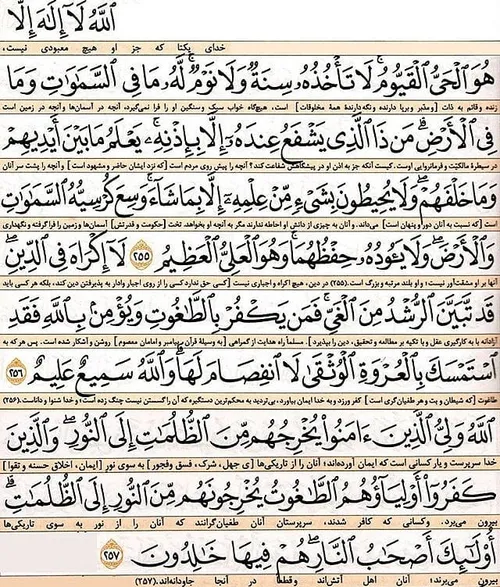 ٱللَّهُ لَآ إِلَٰهَ إِلَّا
خدای یکتا که جز او هیچ معبودی نیست،
هُوَ ٱلْحَىُّ ٱلْقَيُّومُ ۚ لَا تَأْخُذُهُۥ سِنَةٌ وَلَا نَوْمٌ ۚ لَّهُۥ مَا فِى ٱلسَّمَٰوَٰتِ وَمَا
زنده و قائم به ذات [و مدبّر و برپا دارنده و نگه دارندهٔ همهٔ مخلوقات] است، هیچ‌گاه خواب سبک و سنگین او را فرا نمی‌گیرد، آنچه در آسمان‌ها و آنچه در زمین است
فِى ٱلْأَرْضِ ۗ مَن ذَا ٱلَّذِى يَشْفَعُ عِندَهُۥٓ إِلَّا بِإِذْنِهِۦ ۚ يَعْلَمُ مَا بَيْنَ أَيْدِيهِمْ
در سیطرهٔ مالکیّت و فرمانروایی اوست. کیست آنکه جز به اذن او در پیشگاهش شفاعت کند؟ آنچه را پیش روی مردم است [که نزد ایشان حاضر و مشهود است] و آنچه را پشت سر آنان
وَمَا خَلْفَهُمْ ۖ وَلَا يُحِيطُونَ بِشَىْءٍ مِّنْ عِلْمِهِۦٓ إِلَّا بِمَا شَآءَ ۚ وَسِعَ كُرْسِيُّهُ ٱلسَّمَٰوَٰتِ
است [که نسبت به آنان دور و پنهان است] می‌داند. و آنان به چیزی از دانش او احاطه ندارند مگر به آنچه او بخواهد. تخت [حکومت و قدرتش] آسمان‌ها و زمین را فرا گرفته و نگهداری
وَٱلْأَرْضَ ۖ وَلَا يَـُٔودُهُۥ حِفْظُهُمَا ۚ وَهُوَ ٱلْعَلِىُّ ٱلْعَظِيمُ ٢٥٥ لَآ إِكْرَاهَ فِى ٱلدِّينِ ۖ
آنها بر او مشقّت‌آور نیست؛ و او بلند مرتبه و بزرگ است. (۲۵۵) در دین، هیچ اکراه و اجباری نیست [کسی حق ندارد کسی را از روی اجبار وادار به پذیرفتن دین کند، بلکه هر کسی باید
قَد تَّبَيَّنَ ٱلرُّشْدُ مِنَ ٱلْغَىِّ ۚ فَمَن يَكْفُرْ بِٱلطَّٰغُوتِ وَيُؤْمِنۢ بِٱللَّهِ فَقَدِ
آزادانه با به کارگیری عقل و با تکیه بر مطالعه و تحقیق، دین را بپذیرد]. مسلماً راه هدایت از گمراهی [به وسیلهٔ قرآن، پیامبر و امامان معصوم] روشن و آشکار شده است. پس هر که به
ٱسْتَمْسَكَ بِٱلْعُرْوَةِ ٱلْوُثْقَىٰ لَا ٱنفِصَامَ لَهَا ۗ وَٱللَّهُ سَمِيعٌ عَلِيمٌ ٢٥٦
طاغوت [که شیطان و بت و هر طغیان‌گری است] کفر ورزد و به خدا ایمان بیاورد، بی‌تردید به محکم‌ترین دستگیره که آن را گسستن نیست چنگ زده است؛ و خدا شنوا و داناست. (۲۵۶)
ٱللَّهُ وَلِىُّ ٱلَّذِينَ ءَامَنُوا۟ يُخْرِجُهُم مِّنَ ٱلظُّلُمَٰتِ إِلَى ٱلنُّورِ ۖ وَٱلَّذِينَ
خدا سرپرست و یار کسانی است که ایمان آورده‌اند؛ آنان را از تاریکی‌ها [ی جهل، شرک، فسق و فجور] به سوی نور [ایمان، اخلاق حسنه و تقوا]
كَفَرُوٓا۟ أَوْلِيَآؤُهُمُ ٱلطَّٰغُوتُ يُخْرِجُونَهُم مِّنَ ٱلنُّورِ إِلَى ٱلظُّلُمَٰتِ ۗ
بیرون می‌برد. و کسانی که کافر شدند، سرپرستان آنان طغیان‌گرانند که آنان را از نور به سوی تاریکی‌ها
أُو۟لَٰٓئِكَ أَصْحَٰبُ ٱلنَّارِ ۖ هُمْ فِيهَا خَٰلِدُونَ ٢٥٧
بیرون می‌برند؛ آنان اهل آتش‌اند و قطعاً در آنجا جاودانه‌اند. (۲۵۷)